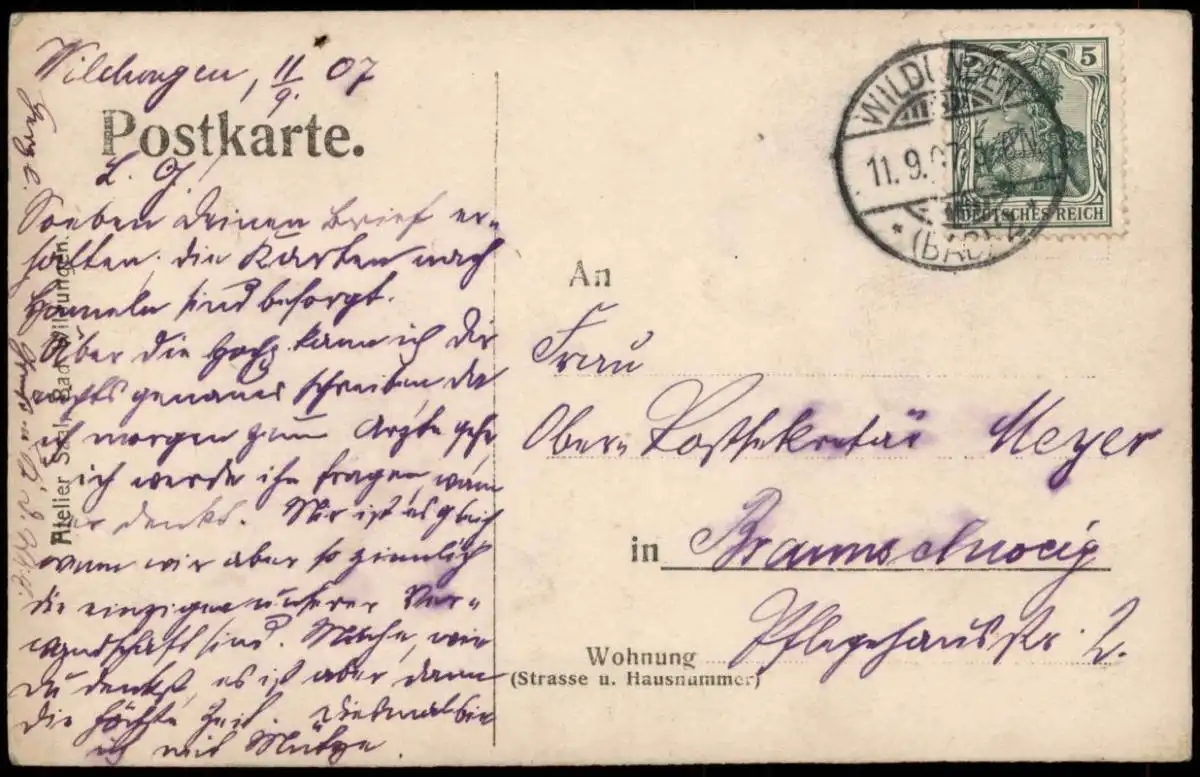 Wildungen, 11/9. 07
Postkarte.
L. G.!
Soeben deinen Brief er-
halten, die Karten nach
Hameln sind besorgt.
Über die Hochz kann ich Dir
nichts genaues schreiben, da
ich morgen zum Arzte gehe
ich werde ihn fragen, wann
er denkt. Mir ist es gleich
wenn wir aber so ziemlich
die einzigen unserer Ver-
wandschaft sind. Mache, wie
Du denkst, es ist aber dann
die höchste Zeit. Diesmal bin
ich mit Mütze.
Atelier Saal, Bad Wildungen.
WILDUNGEN
11.9.07
* (BAD) *
5
DEUTSCHES REICH
An
Frau
Ober-Postsekretär Meyer
in Braunschweig
Pflegehausstr. 2.
Wohnung
(Strasse u. Hausnummer)